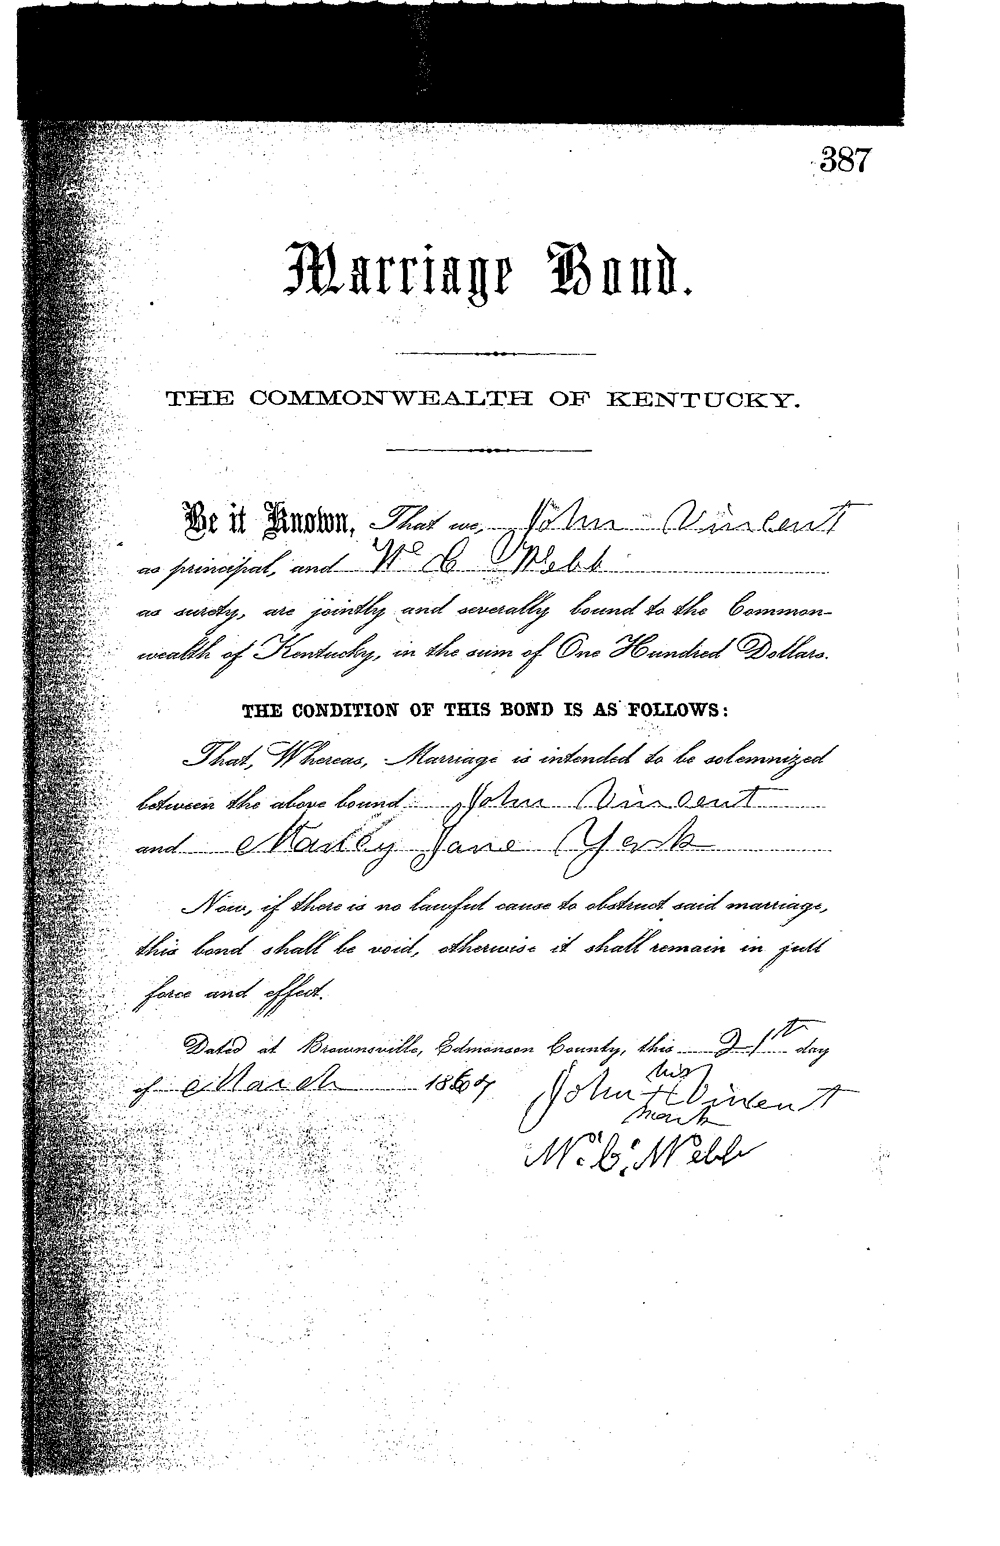 387
Marriage Bond.
THE COMMONWEALTH OF KENTUCKY.
Be it Known, That we, John Vincent
as principal, and W C Webb
as surety, are jointly and severally bound to the Common-
wealth of Kentucky, in the sum of One Hundred Dollars.
THE CONDITION OF THIS BOND IS AS FOLLOWS:
That, Whereas, Marriage is intended to be solemnized
between the above bound John Vincent
and Jane York
Now, if there is no lawful cause to obstruct said marriage,
this bond shall be void, otherwise it shall remain in full
force and effect.
Dated at Brownsville, Edmonson County, this 21th day
of March 1867
his
John + Vincent
mark
W. C. Webb